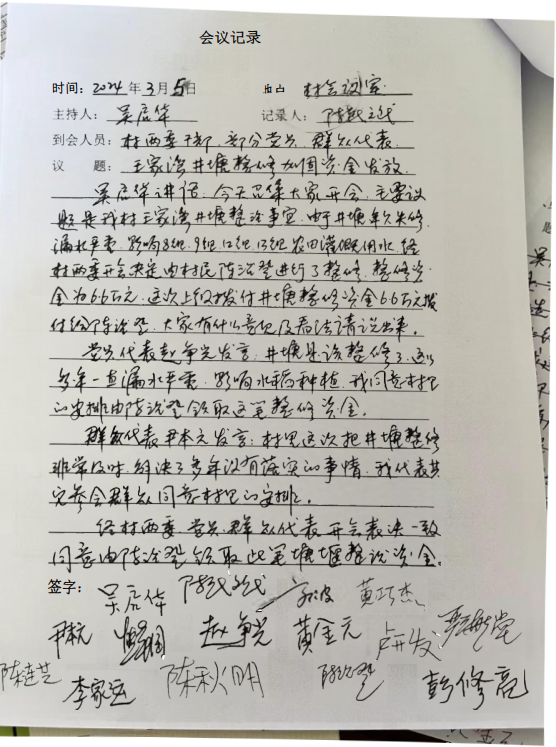 会议记录
时间：2024年3月5日 地点 村会议室
主持人：吴启华 记录人：陈
到会人员：村两委干部、部分党员、群众代表
议 题：王家湾井塘整修加固资金发放
吴启华讲话：今天召集大家开会，主要议
题是我村王家湾井塘整治事宜，由于井塘年久失修
漏水严重，影响8组、9组、12组、13组农田灌溉用水，经
村两委开会决定由村民陈治登进行了整修，整修资
金为6.6万元，这次上级拨付井塘整修资金6.6万元拨
付给陈治登，大家有什么意见及看法请说出来。
党员代表赵争光发言：井塘是该整修了，这么
多年一直漏水严重，影响水稻种植，我同意村里
的安排由陈治登领取这笔整修资金。
群众代表尹本元发言：村里这次把井塘整修
非常及时，解决了多年没有落实的事情，我代表其
它参会群众同意村里的安排。
经村两委、党员、群众代表开会表决一致
同意由陈治登领取此笔塘堰整治资金。
签字：吴启华 黄巧杰
赵争光 黄金元
陈连芝 李家运 陈秋明 陈治登 彭修亮